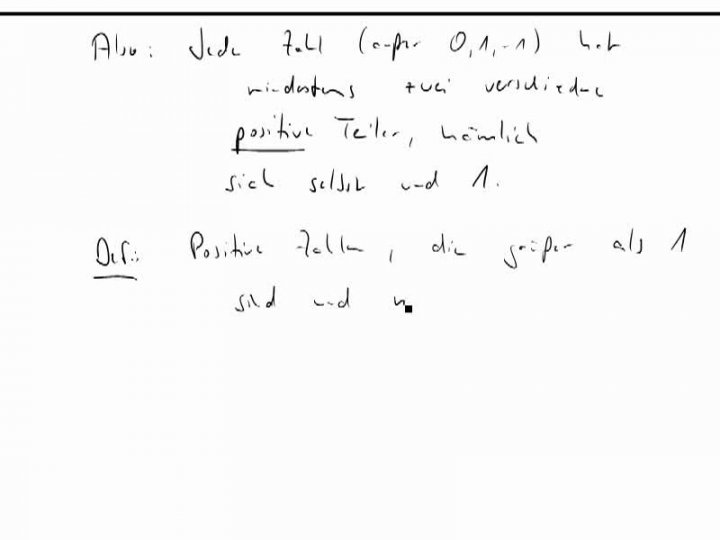 Also: Jede Zahl (außer 0, 1, -1) hat
mindestens zwei verschiedene
positive Teiler, nämlich
sich selbst und 1.
Def.: Positive Zahlen, die größer als 1
sind und n